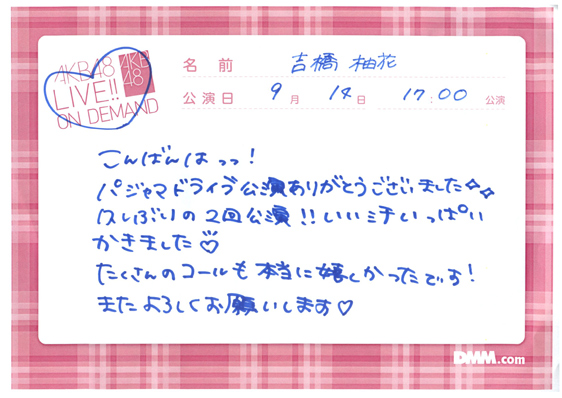 AKB48
LIVE!!
ON DEMAND
AKB
48
名前 吉橋 柚花
公演日 9月 14日 17:00 公演
こんばんはっっ!
パジャマドライブ公演ありがとうございました✧✧
ひしぶりの2回公演!!いい汗いっぱい
かきました♡
たくさんのコールも本当に嬉しかったです!
またよろしくお願いします♡
DMM.com